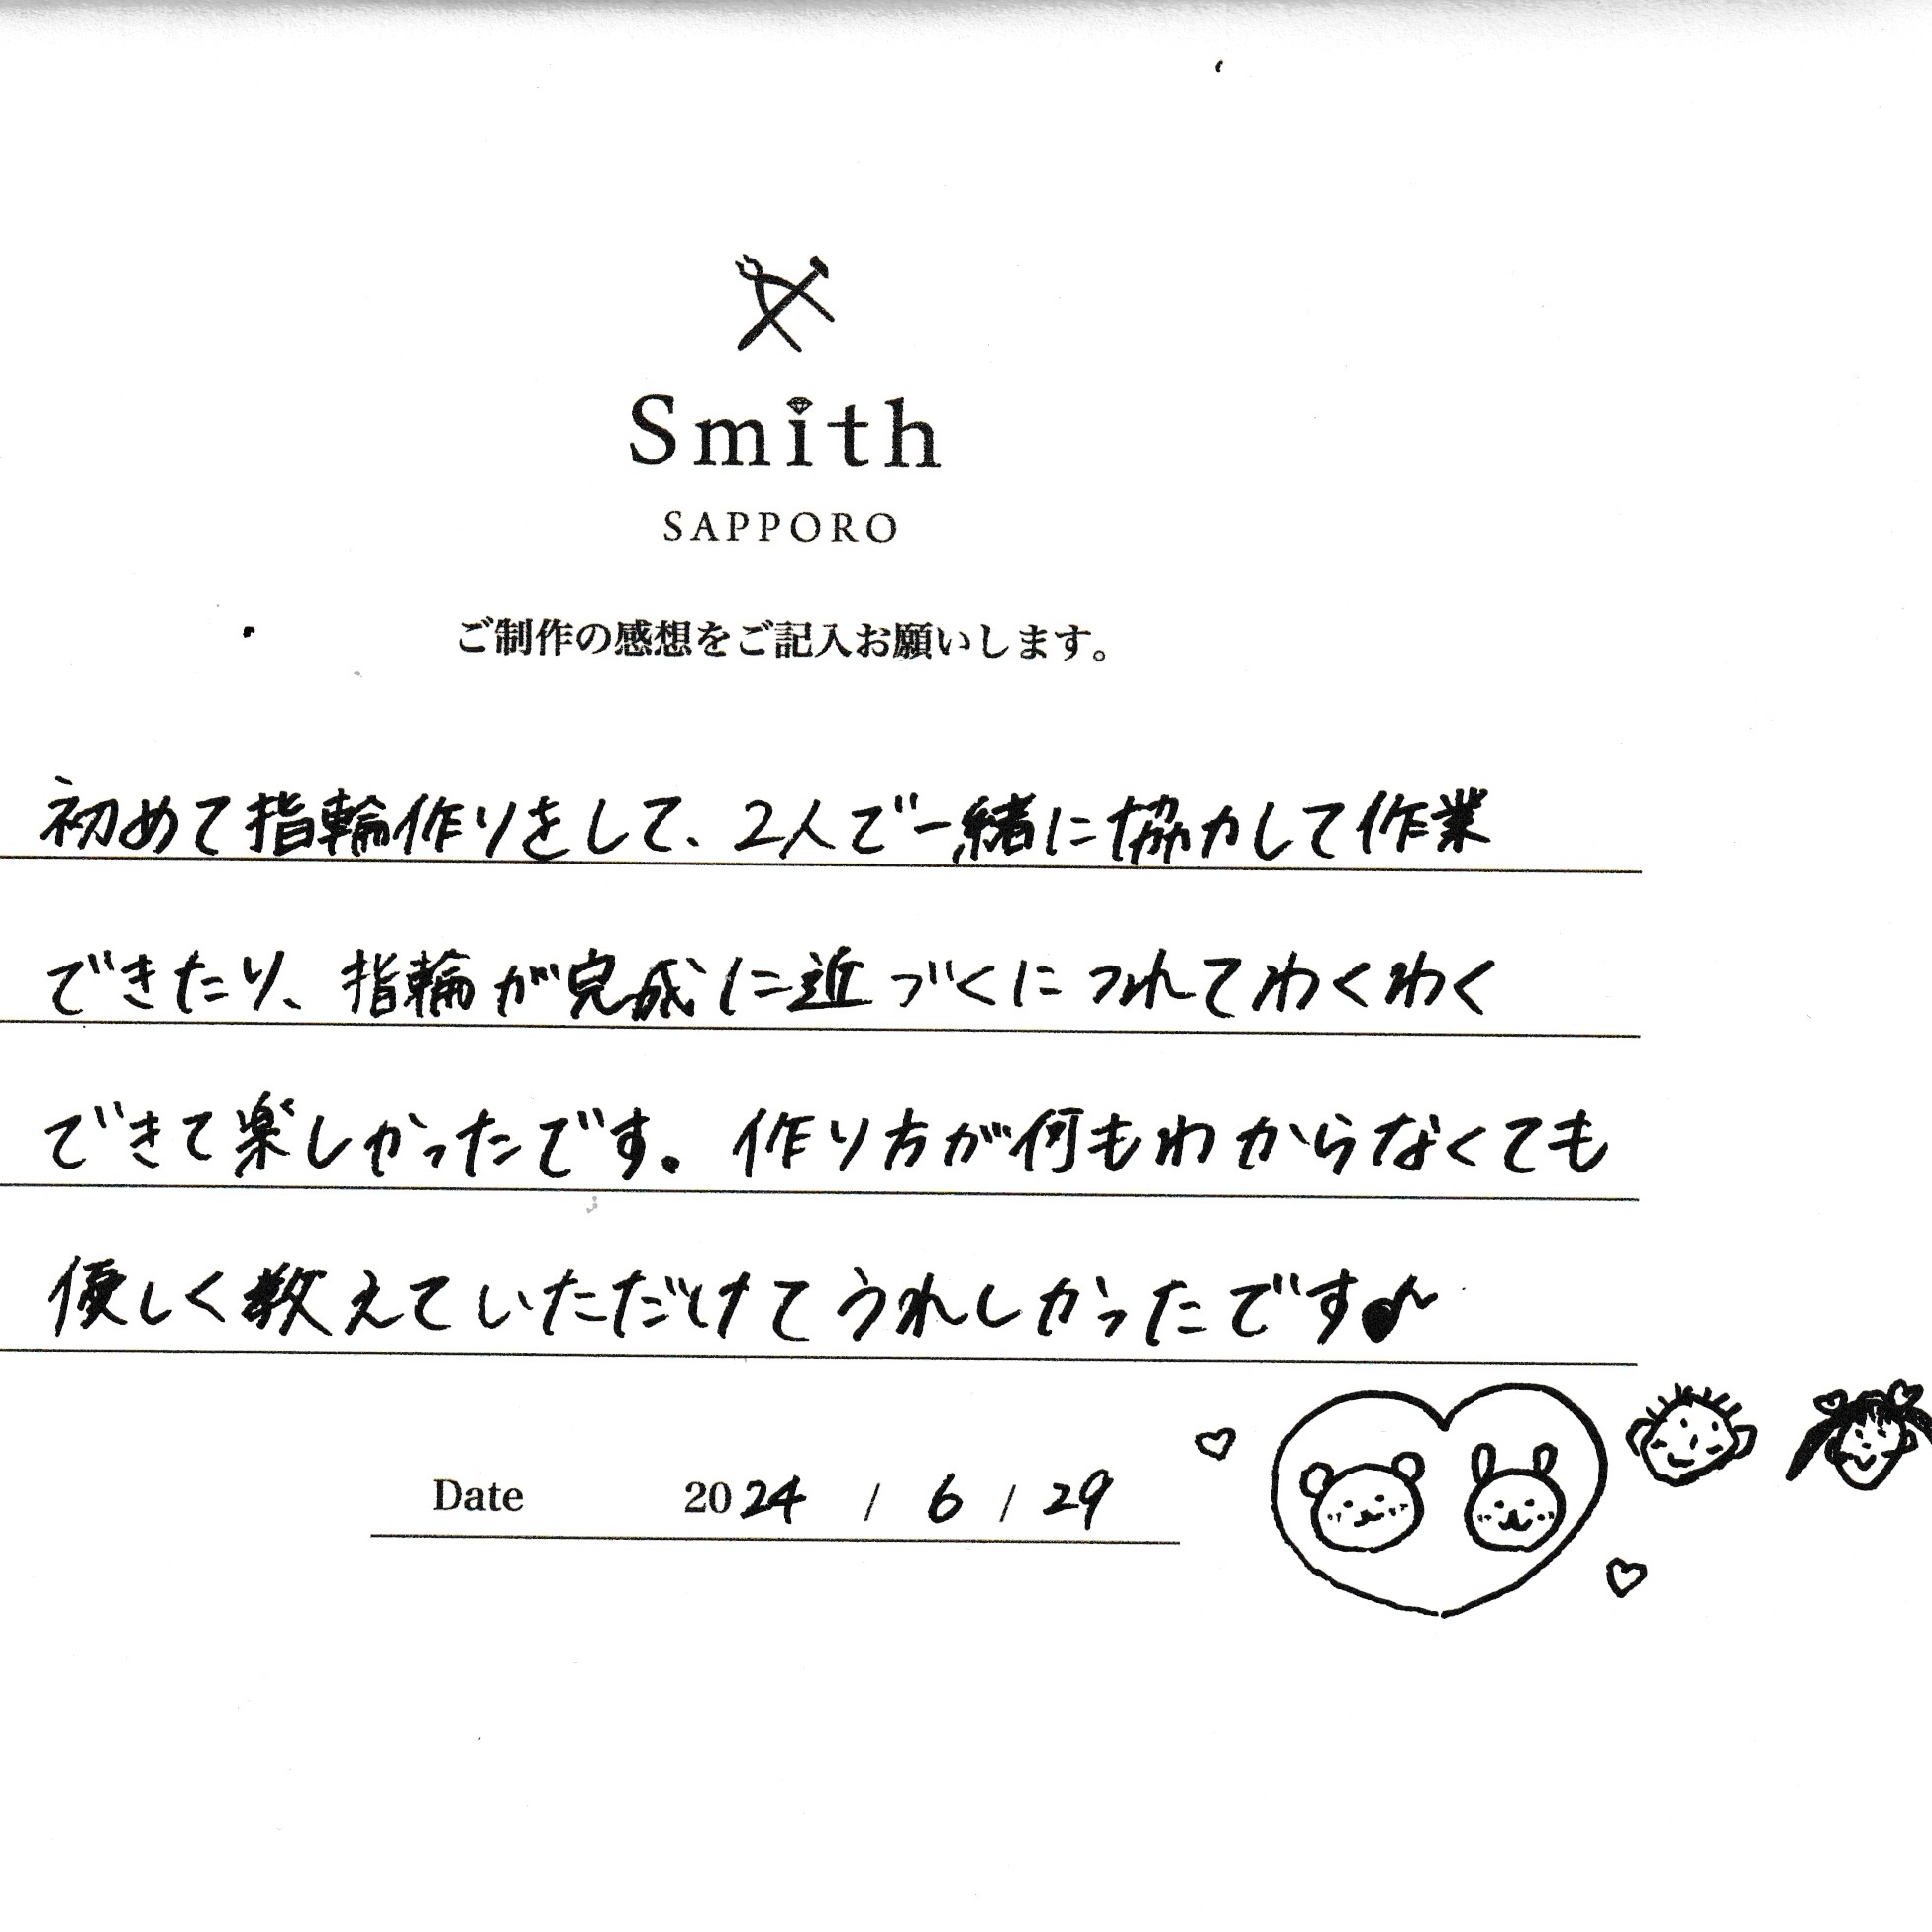 Smith
SAPPORO
ご制作の感想をご記入お願いします。
初めて指輪作りをして、2人で一緒に協力して作業
できたり、指輪が完成に近づくにつれてわくわく
できて楽しかったです。作り方が何もわからなくても
優しく教えていただけてうれしかったです♪
Date 2024 / 6 / 29